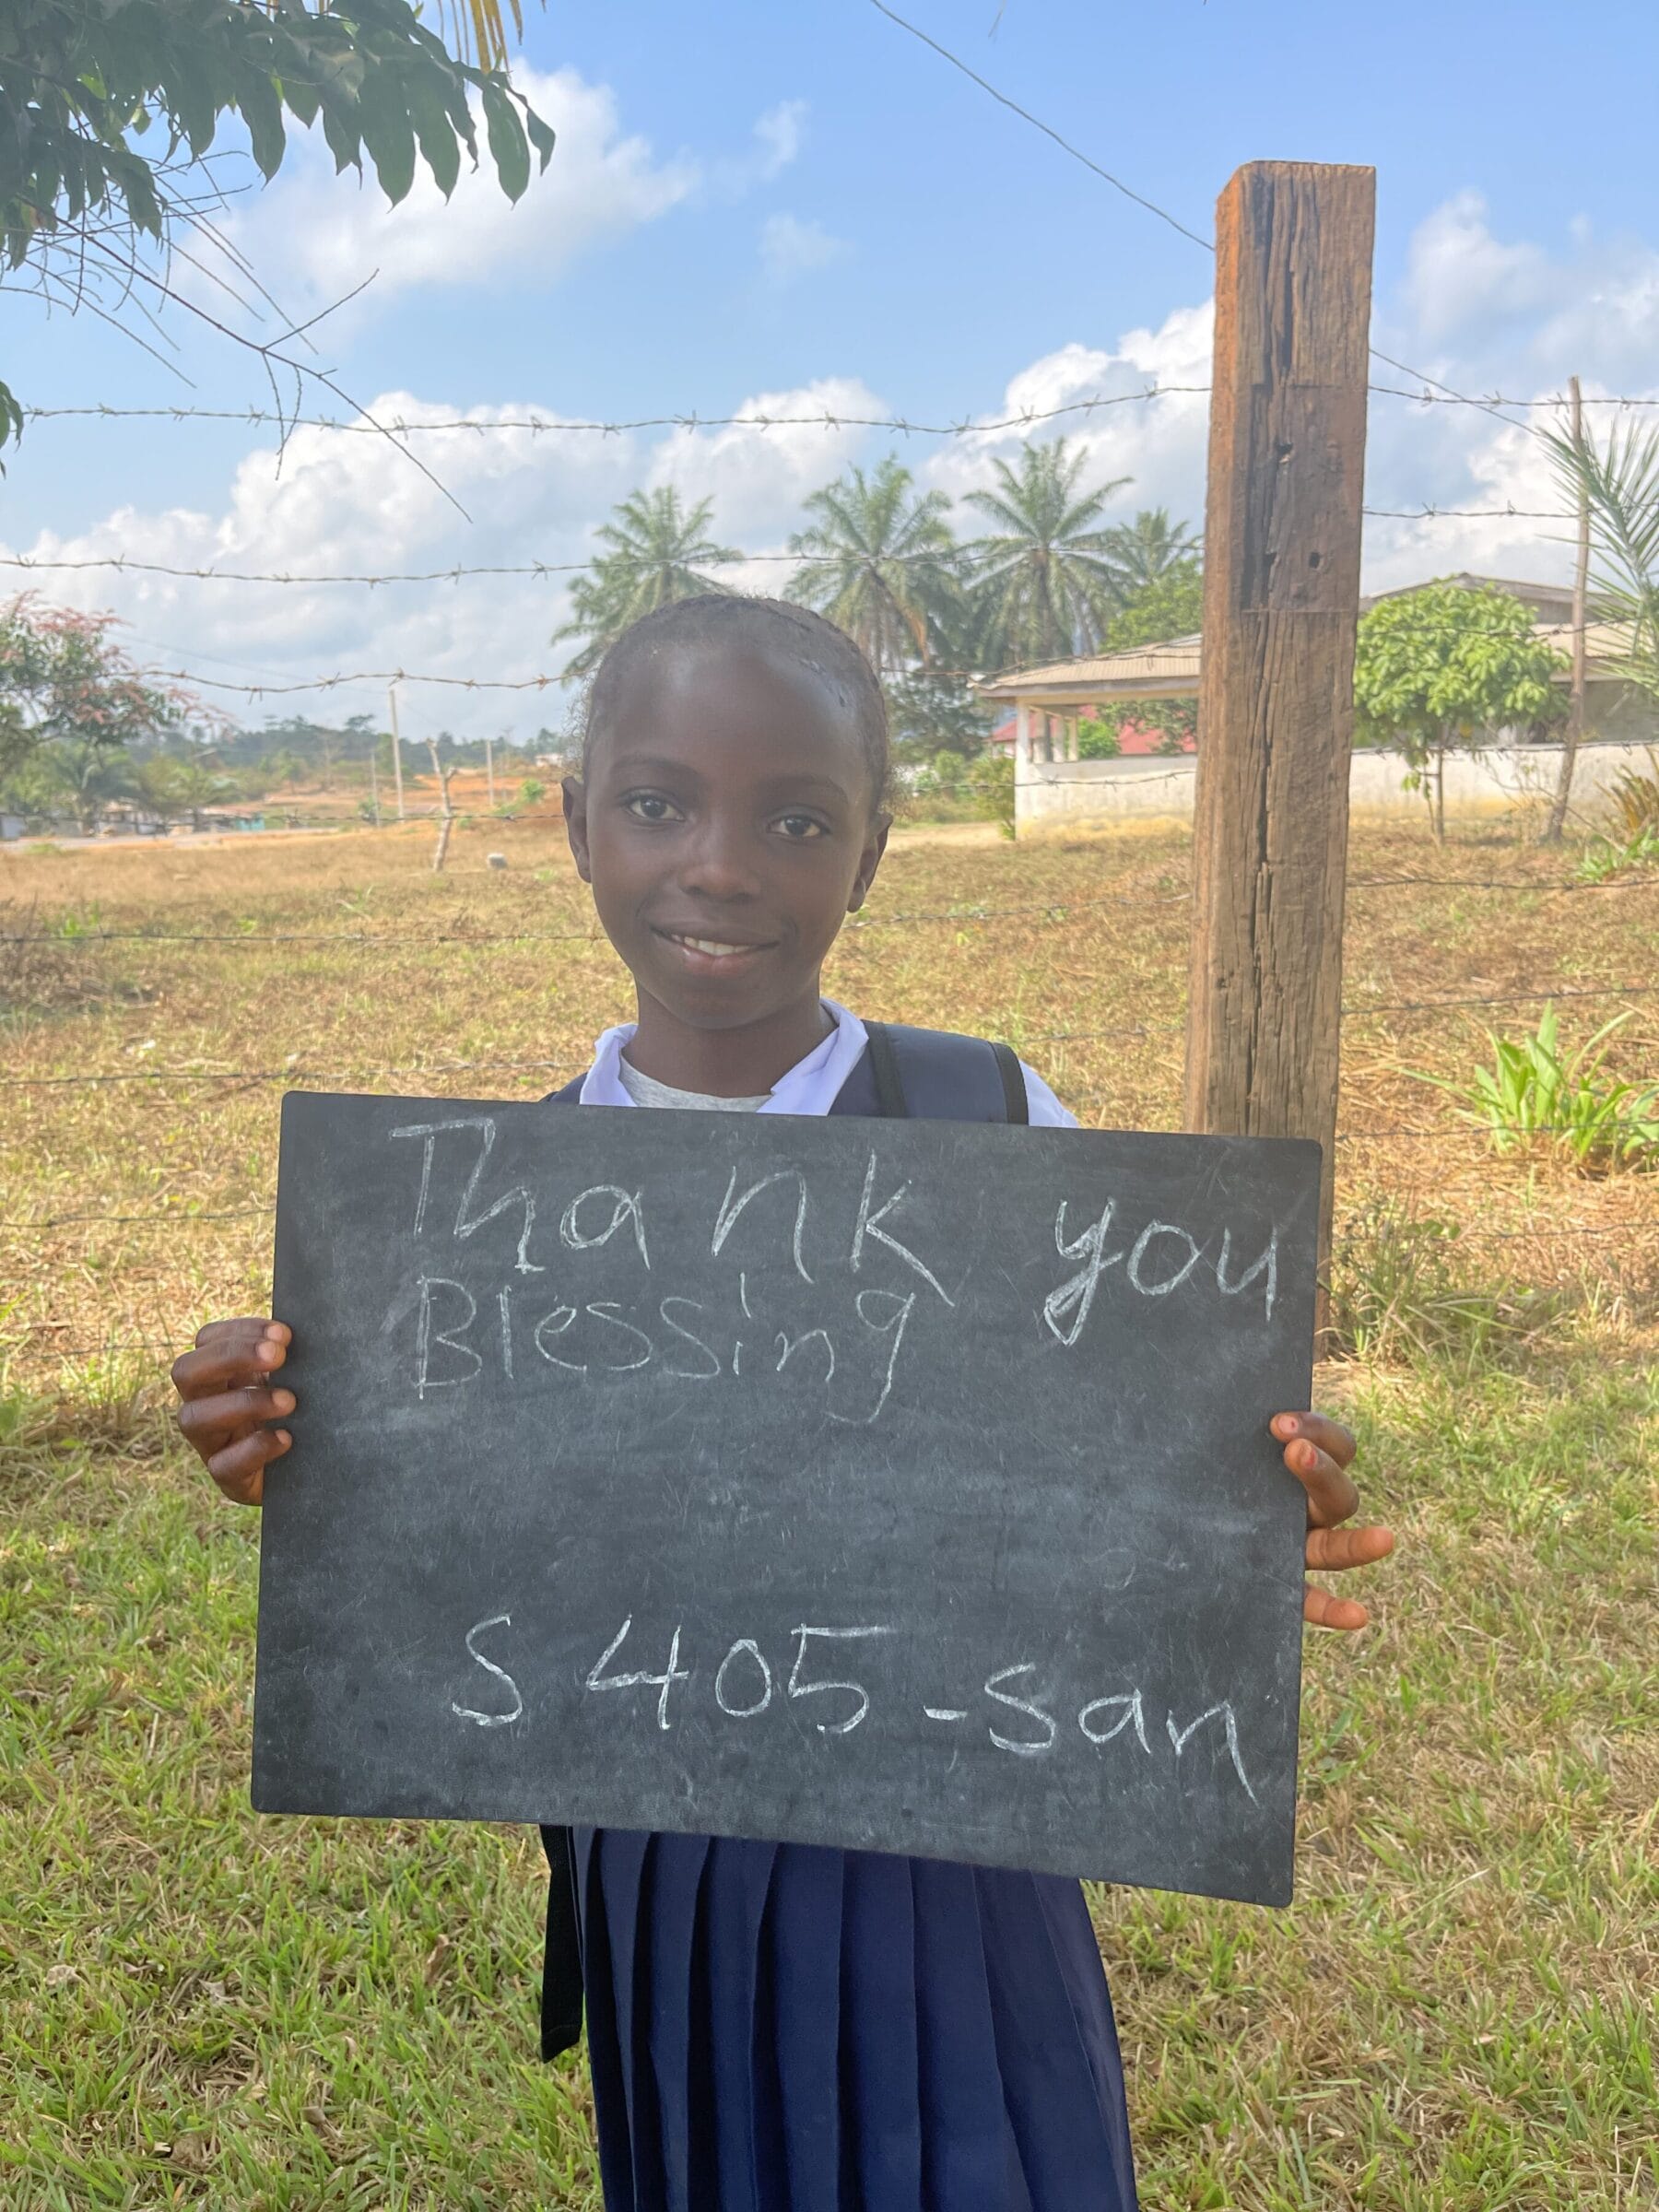 Thank you
Blessing
S 405 - San